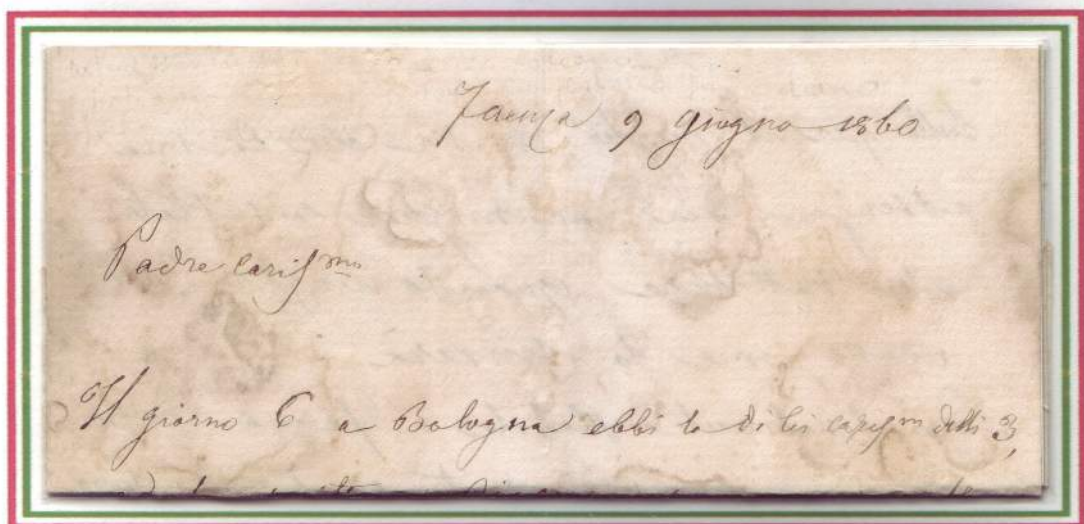 Faenza 9 giugno 1860
Padre cariss.mo
Il giorno 6 a Bologna ebbi la di lei cariss.ma delli 3,